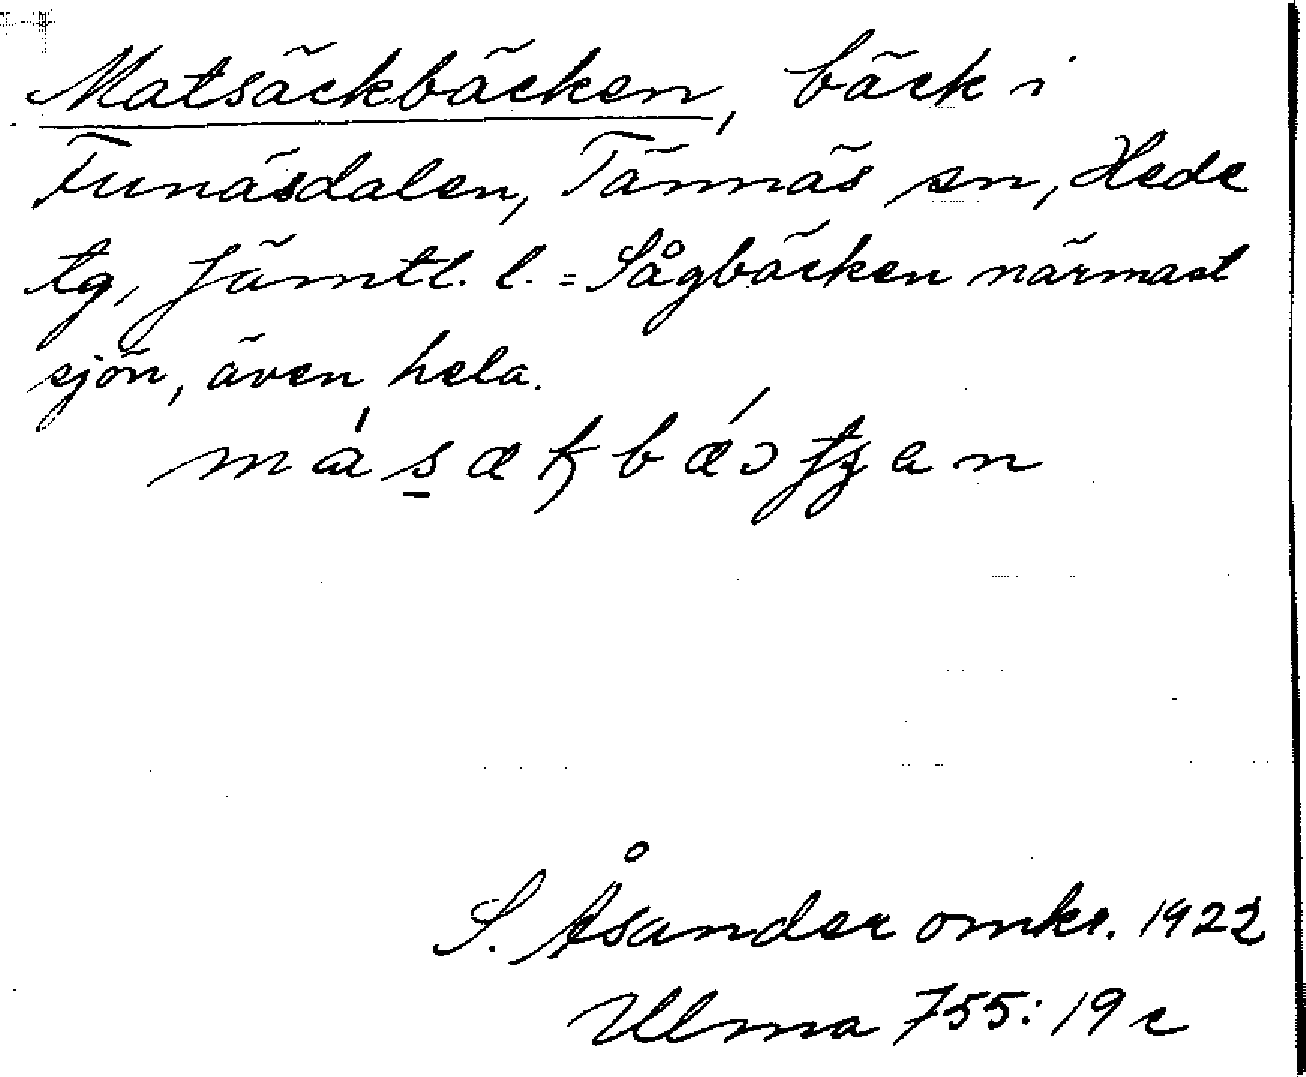 Matsäckbäcken, bäck i
Funäsdalen, Tännäs sn, Hede
tg, Jämtl. l. = Sågbäcken närmast
sjön, även hela.
S. Åsander omkr. 1922
Ulma 755: 19 c